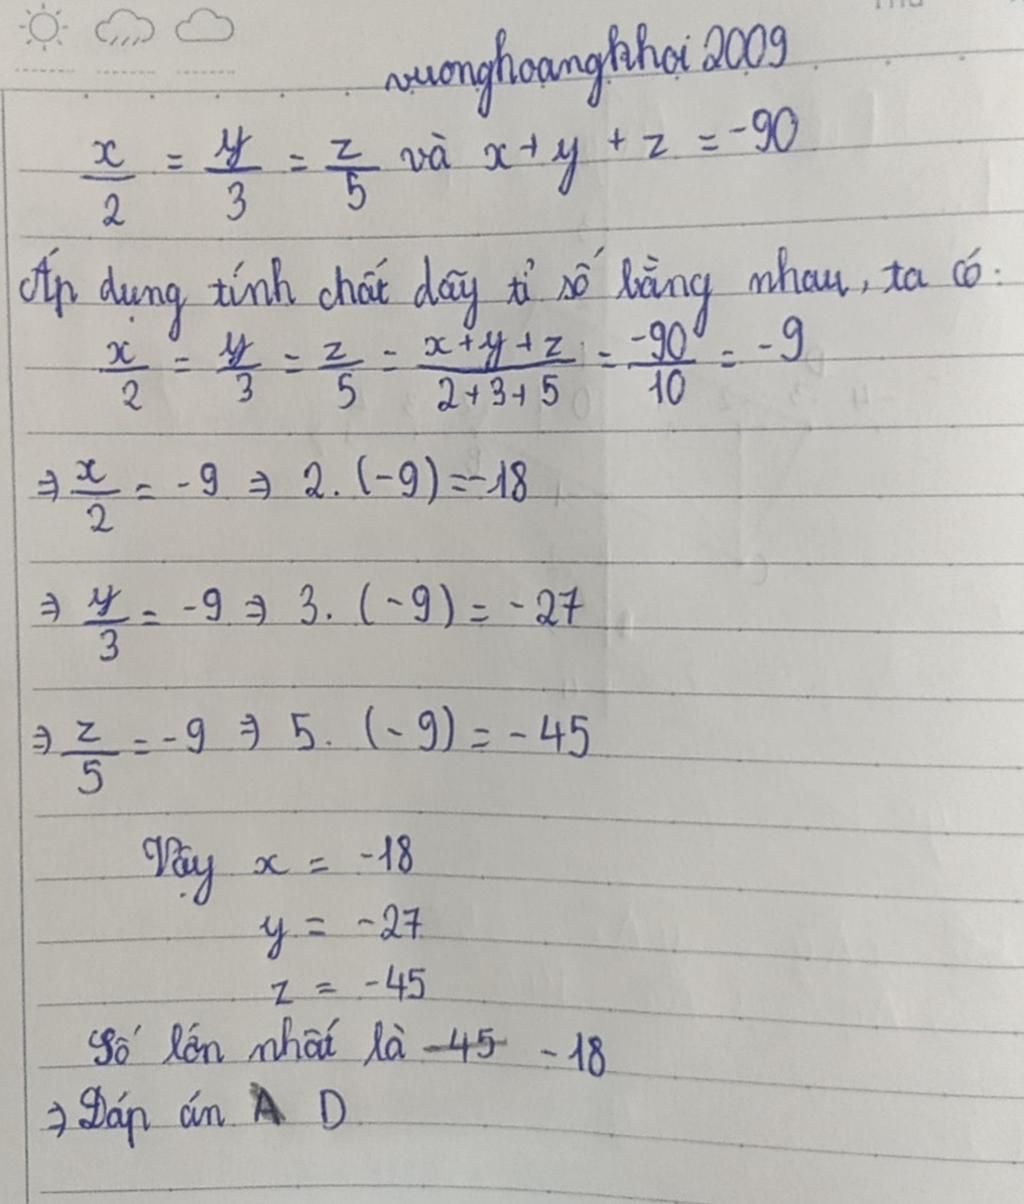 vuonghoangkhoi2009
x/2 = y/3 = z/5 và x + y + z = -90
Áp dụng tính chất dãy tỉ số bằng nhau, ta có:
x/2 = y/3 = z/5 = x+y+z/2+3+5 = -90/10 = -9
⇒ x/2 = -9 ⇒ 2. (-9) = -18
⇒ y/3 = -9 ⇒ 3. (-9) = -27
⇒ z/5 = -9 ⇒ 5. (-9) = -45
Vậy x = -18
y = -27
z = -45
Số lớn nhất là -45 -18
⇒ Đáp án A D